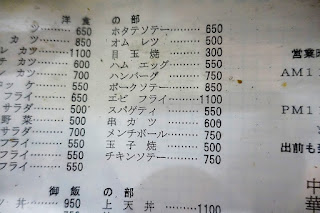 洋食の部
の 650
カツ 850
レカツ 1100
チカツ 700
カツ 500
ロッケ 550
フライ 550
サラダ 500
野菜 500
サラダ 700
フライ 550
フライ 550
フライ 550
ホタテソテー 650
オムレツ 500
目玉焼 300
ハムエッグ 550
ハンバーグ 750
ポークソテー 850
エビフライ 1100
スパゲティ 550
串カツ 600
メンチボール 750
玉子焼 500
チキンソテー 750
御飯の部
丼 950
上天丼 1100
営業時
AM11
PM1
出前も
中
華